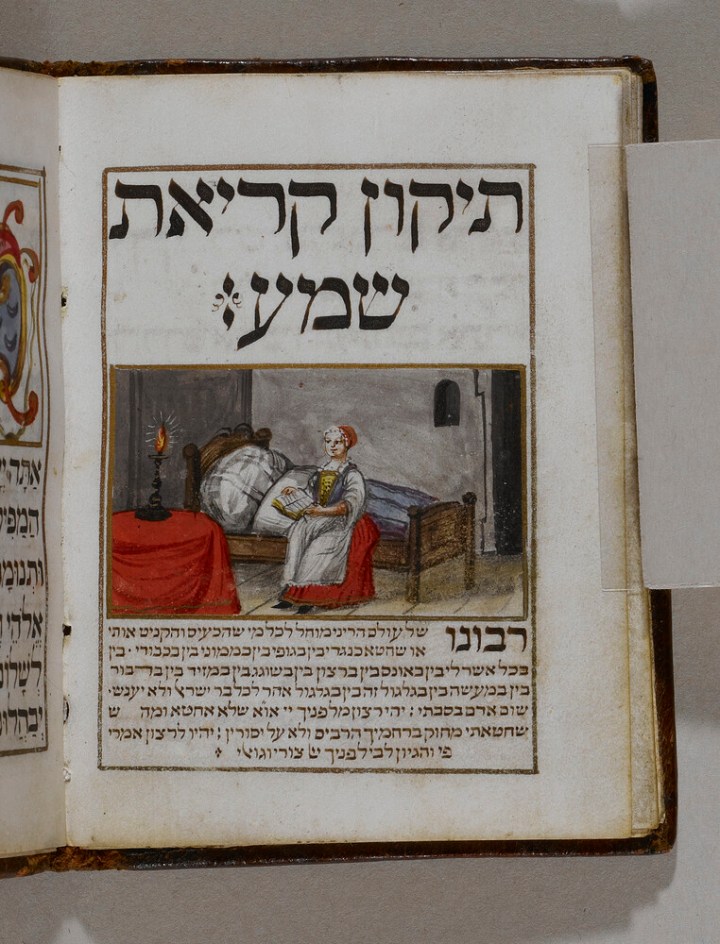 תיקון קריאת
שמע:
רבונו של עולם הריני מוחל לכל מי שהכעיס והקניט אותי
או שחטא כנגדי בין בגופי בין בממוני בין בכבודי · בין
בכל אשר לי בין באונס בין ברצון בין בשוגג בין במזיד בין בדבור
בין במעשה בין בגלגול זה בין בגלגול אהר לכל בר ישראל ולא יענש
שום אדם בסבתי ; יהי רצון מלפניך יי אוא שלא אחטא ומה ש
שחטאתי מחוק ברחמיך הרבים ולא על יסורין ; יהיו לרצון אמרי
פי והגיון לבי לפניך צורי וגואלי
אַתָּה
אֱלֹהַי